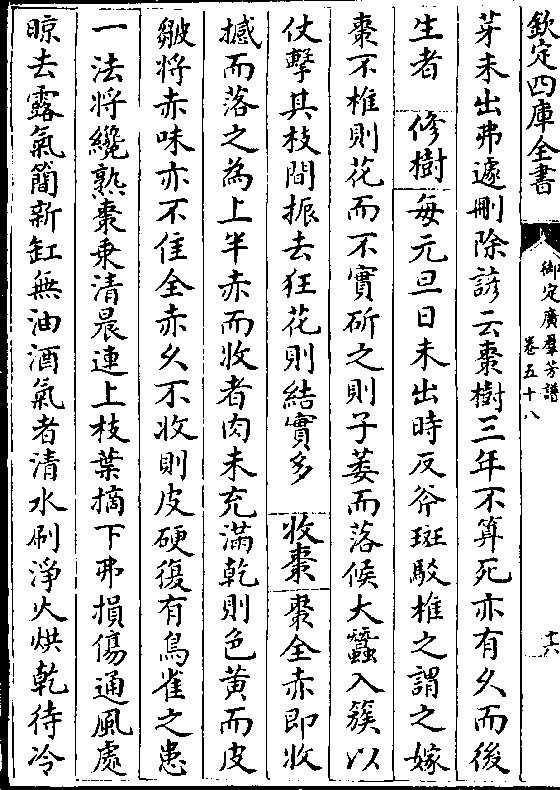 欽定四庫全書
御定廣羣芳譜
卷五十八
十六
芽未出弗遽刪除諺云棗樹三年不算死亦有久而後
生者 修樹 每元旦日未出時反斧斑駁椎之謂之嫁
棗不椎則花而不實斫之則子萎而落候大蠶入簇以
仗擊其枝間振去狂花則結實多 收棗 棗全赤即收
撼而落之為上半赤而收者肉未充滿乾則色黄而皮
皺將赤味亦不佳全赤久不收則皮硬復有鳥雀之患
一法將纔熟棗乗清晨連上枝葉摘下弗損傷通風處
晾去露氣簡新缸無油酒氣者清水刷淨火烘乾待冷